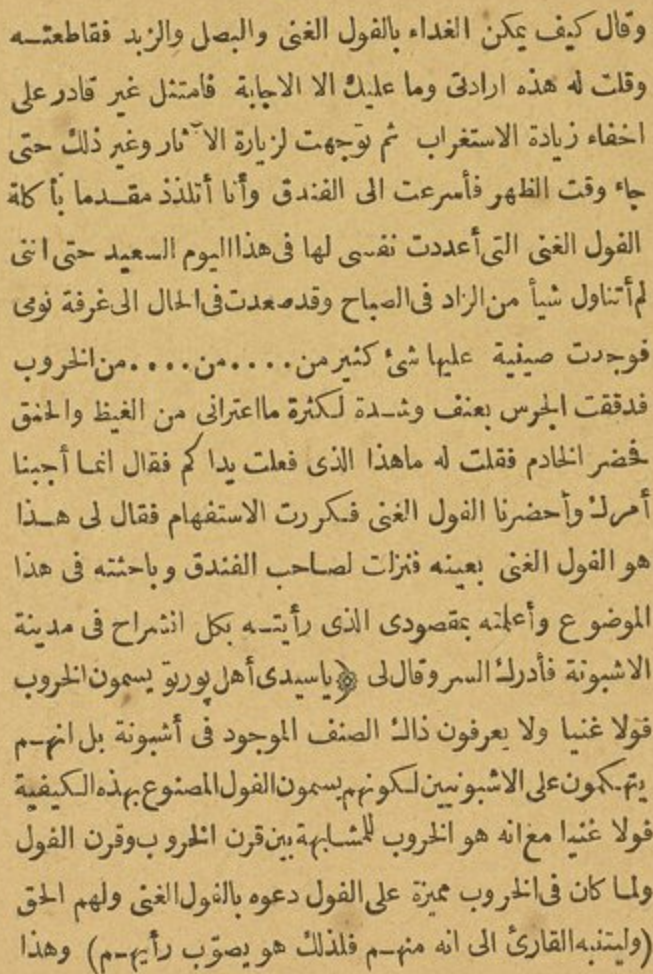 وقال كيف يمكن الغداء بالفول الغنى والبصل والزبد فقاطعته
وقلت له هذه ارادتى وما عليك الا الاجابة فامتثل غير قادر على
اخفاء زيادة الاستغراب ثم توجهت لزيارة الآثار وغير ذلك حتى
جاء وقت الظهر فأسرعت الى الفندق وأنا أتلذذ مقدما بأكلة
الفول الغنى التى أعددت نفسى لها فى هذا اليوم السعيد حتى اننى
لم أتناول شيأ من الزاد فى الصباح وقد صعدت فى الحال الى غرفة نومى
فوجدت صينية عليها شئ كثير من....من....من الخروب
فدققت الجرس بعنف وشدة لكثرة ما اعترانى من الغيظ والحنق
فحضر الخادم فقلت له ما هذا الذى فعلت يداكم فقال انما أجبنا
أمرك وأحضرنا الفول الغنى فكررت الاستفهام فقال لى هذا
هو الفول الغنى بعينه فنزلت لصاحب الفندق وباحثته فى هذا
الموضوع وأعلمته بمقصودى الذى رأيته بكل انشراح فى مدينة
الاشبونة فأدرك السر وقال لى ﴿ياسيدى أهل پورتو يسمون الخروب
فولا غنيا ولا يعرفون ذاك الصنف الموجود فى أشبونة بل انهم
يتهكمون على الاشبونيين لكونهم يسمون الفول المصنوع بهذه الكيفية
فولا غنيا مع انه هو الخروب للمشابهة بين قرن الخروب وقرن الفول
ولما كان فى الخروب مميزة على الفول دعوه بالفول الغنى ولهم الحق
(وليتنبه القارئ الى انه منهم فلذلك هو يصوّب رأيهم) وهذا